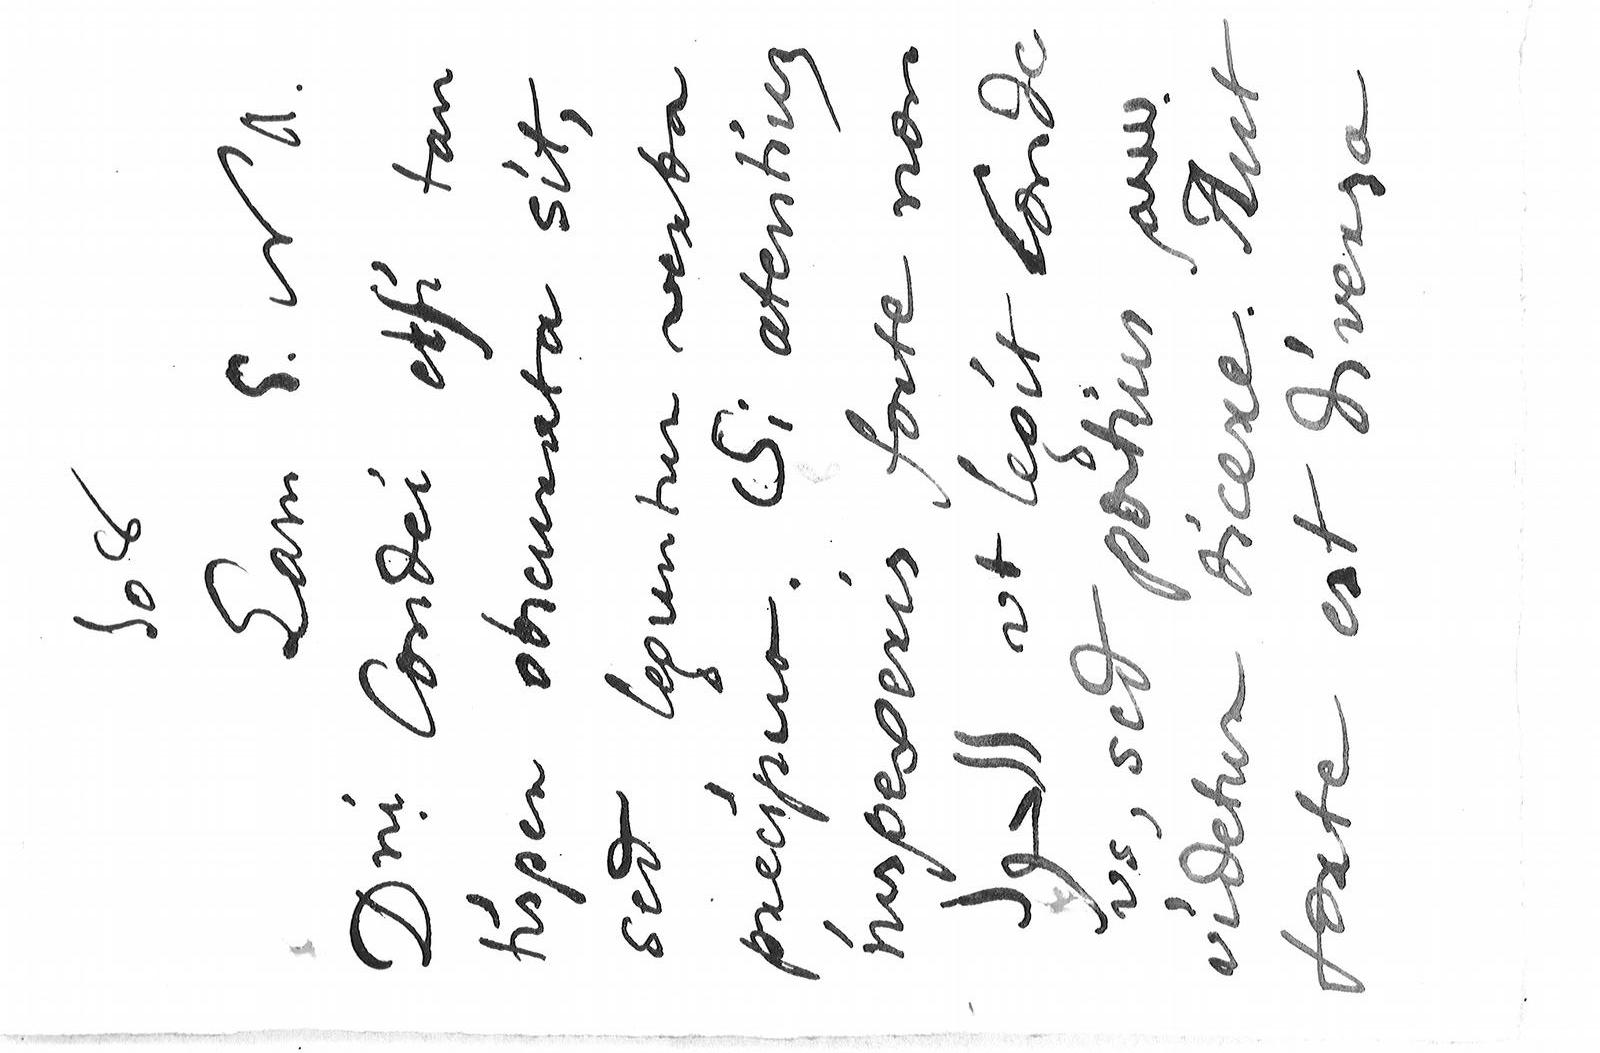 Eam E.
Dni Condei etsi tan
tisper obscurata sit,
sed leguntur verba
precipua. Si atentius
inspexeris forte non
ut legit Conde
us, sed potius
videtur dicere. Aut
forte est diversa